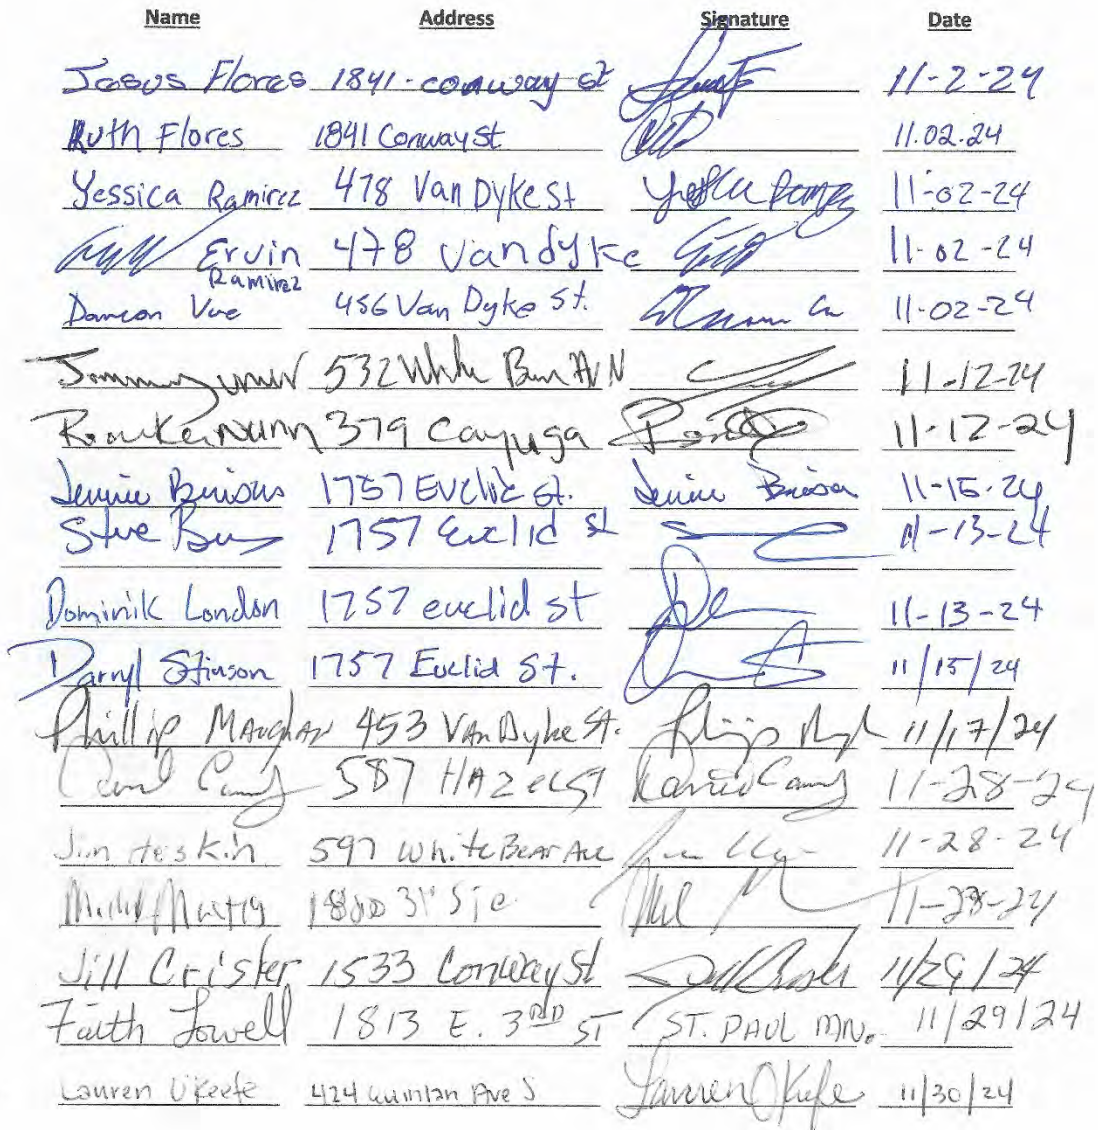 Name Address Signature Date
Jesus Flores 1841 - conway st 11-2-24
Ruth Flores 1841 Conway St 11.02.24
Yessica Ramirez 478 Van Dyke St 11-02-24
Ervin Ramirez 478 Vandyke 11-02-24
Damcon Vue 456 Van Dyke St. 11-02-24
532 White Bear Av N 11-12-24
379 Cayuga 11-12-24
Jennie 1757 Euclid St. Jennie 11-15-24
Steve 1757 Euclid St 11-13-24
Dominik London 1757 euclid st 11-13-24
Darryl Stinson 1757 Euclid St. 11/15/24
Phillip Maughan 453 Van Dyke St. 11/17/24
587 Hazel St 11-28-24
Jim Heskin 597 White Bear Ave 11-28-24
11-28-24
Jill Crister 1533 Conway St 11/29/24
Faith Lowell 1813 E. 3RD ST ST. PAUL MN. 11/29/24
Lauren O'Keefe 424 Quinlan Ave S Lauren O'Keefe 11/30/24